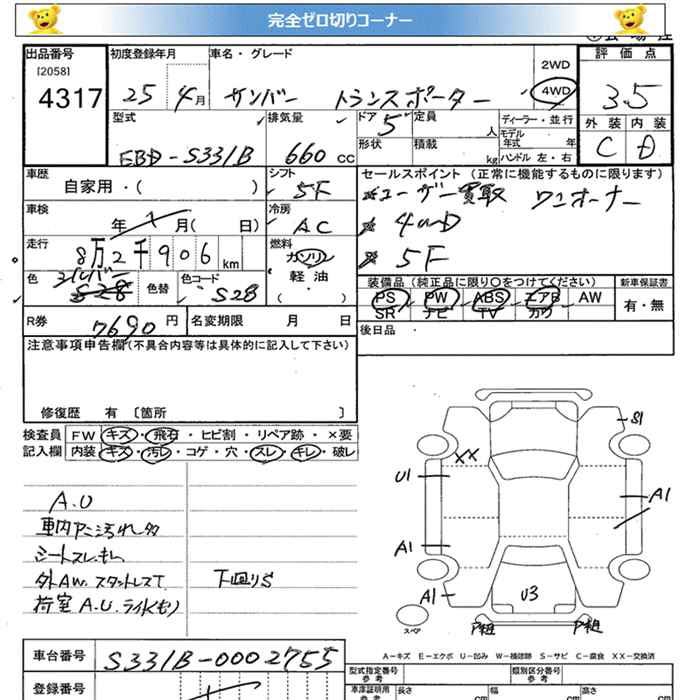 完全ゼロ切りコーナー
出品番号
[2058]
4317
初度登録年月
25 4月
車名・グレード
サンバー トランスポーター
2WD
4WD
評価点
3.5
外装 内装
C D
型式
EBD-S331B
排気量
660 CC
ドア
5
定員
人
形状
積載
kg
ディーラー・並行
モデル年式 年
ハンドル 左・右
車歴
自家用・( )
シフト
5F
セールスポイント(正常に機能するものに限ります)
ユーザー買取 ワンオーナー
4WD
5F
車検
年 月( 日)
冷房
AC
走行
8万2千906 km
燃料
ガソリン
軽油
( )
色
シルバー
S28
色替
色コード
S28
装備品(純正品に限り○をつけてください)
PS PW ABS エアB AW
SR ナビ TV カワ
新車保証書
有・無
R券
7690 円
名変期限 月 日
後日品
注意事項申告欄(不具合内容等は具体的に記入して下さい)
修復歴 有 〔箇所 〕
検査員記入欄
FW キズ・飛石・ヒビ割・リペア跡・×要
内装 キズ・汚レ・コゲ・穴・スレ・キレ・破レ
A.U
シートスレ
下廻りS
荷室A.U.
S1
XX
U1
A1
A1
A1
U3
スペア
A-キズ E-エクボ U-凹み W-補修跡 S-サビ C-腐食 XX-交換済
車台番号
S331B-0002755
登録番号
型式指定番号
参考
類別区分番号
参考
車庫証明用
参考
長さ cm
幅 cm
高さ cm